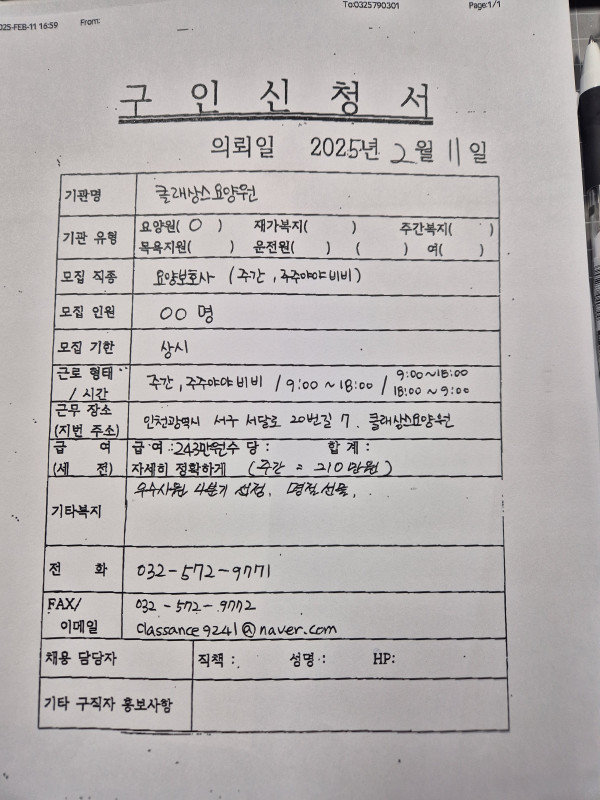 2025-FEB-11 16:59 From: To:0325790301 Page:1/1
구 인 신 청 서
의뢰일 2025년 2월 11일
기관명 클래상스요양원
기관 유형 요양원( O ) 재가복지( ) 주간복지( )
목욕지원( ) 운전원( ) ( ) 여( )
모집 직종 요양보호사 (주간, 주주야야비비)
모집 인원 00 명
모집 기한 상시
근로 형태 / 시간 주간, 주주야야비비 / 9:00~18:00 / 9:00~18:00
18:00~9:00
근무 장소 (지번 주소) 인천광역시 서구 서달로 20번길 7. 클래상스요양원
급 여 급여:243만원수 당: 합 계:
(세 전) 자세히 정확하게 (주간 = 210만원)
기타복지 우수사원 4분기 선정, 명절선물,
전 화 032-572-9771
FAX/ 032-572-9772
이메일 classance9241@naver.com
채용 담당자 직책: 성명: HP:
기타 구직자 홍보사항